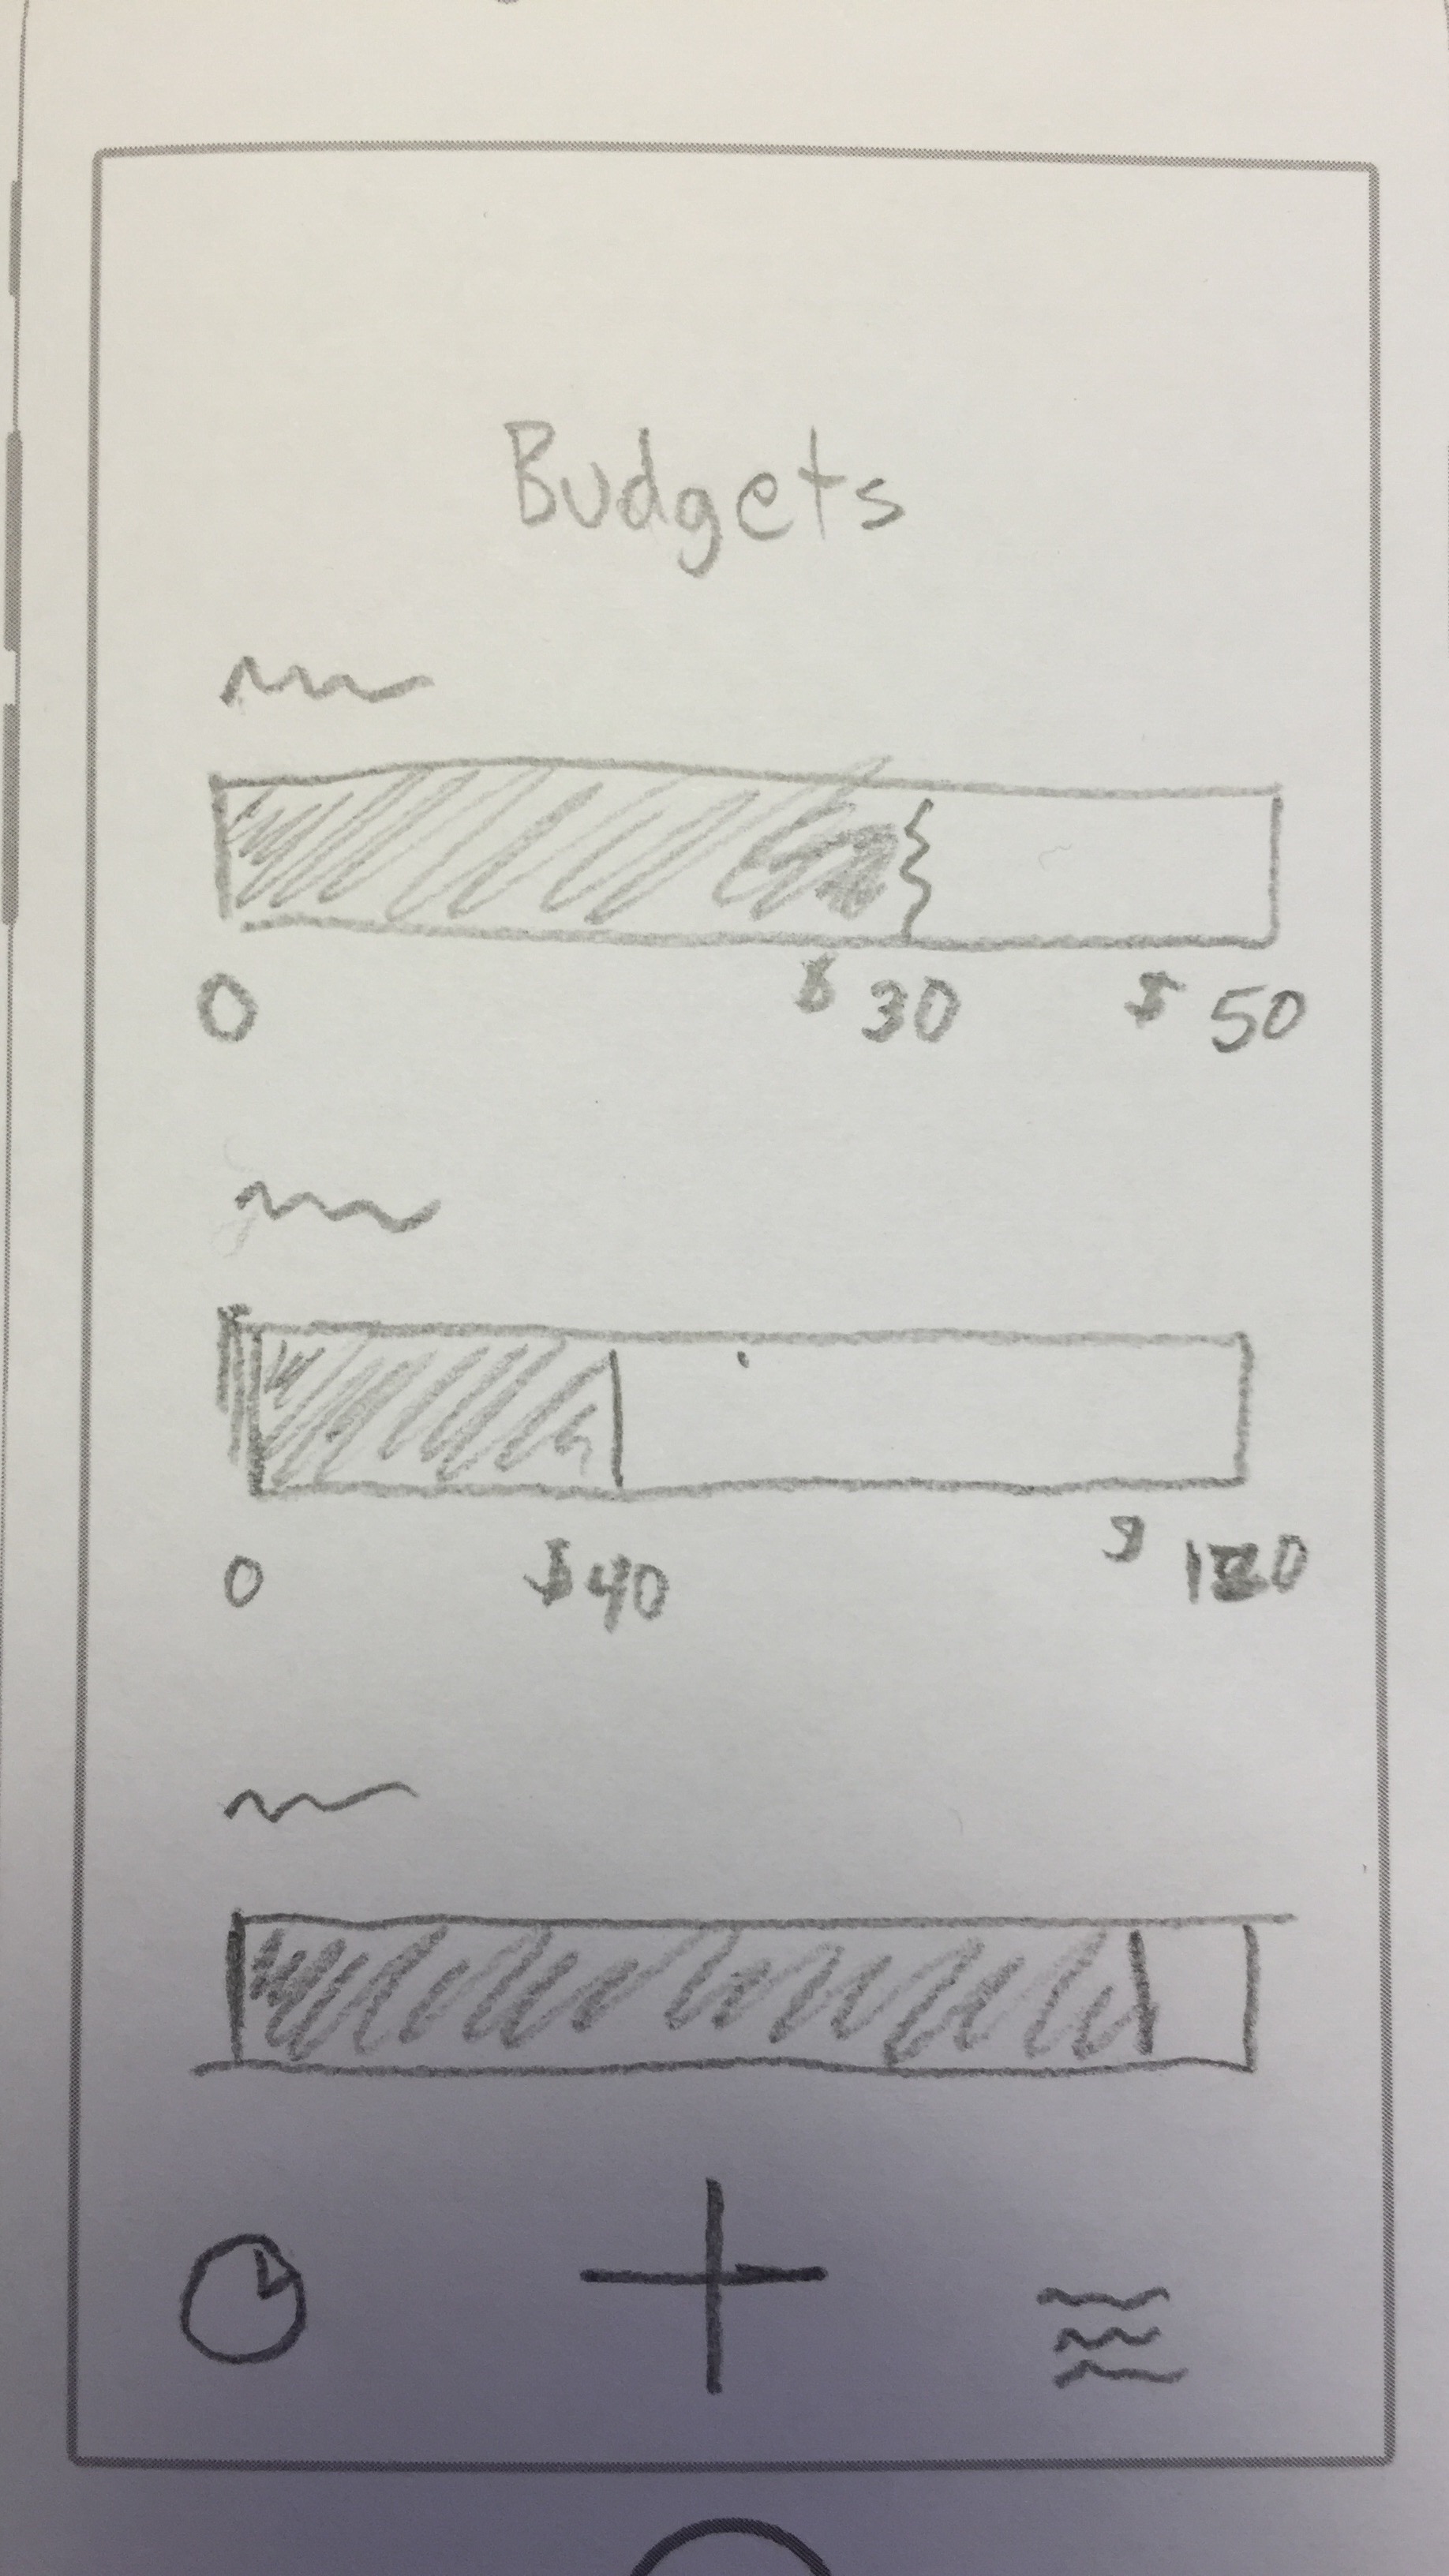 Budgets
0 $ 30 $ 50
0 $40 $